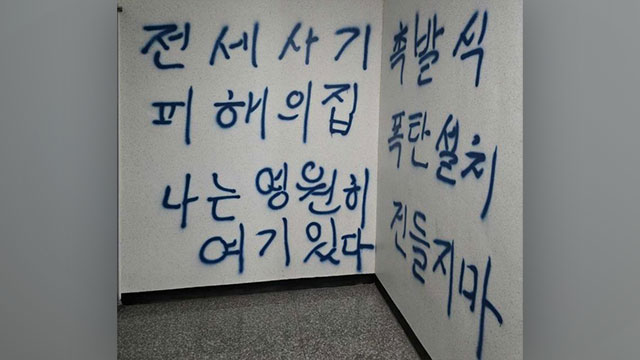 전세사기
피해의집
나는영원히
여기있다
촉발식
폭탄설치
건들지마